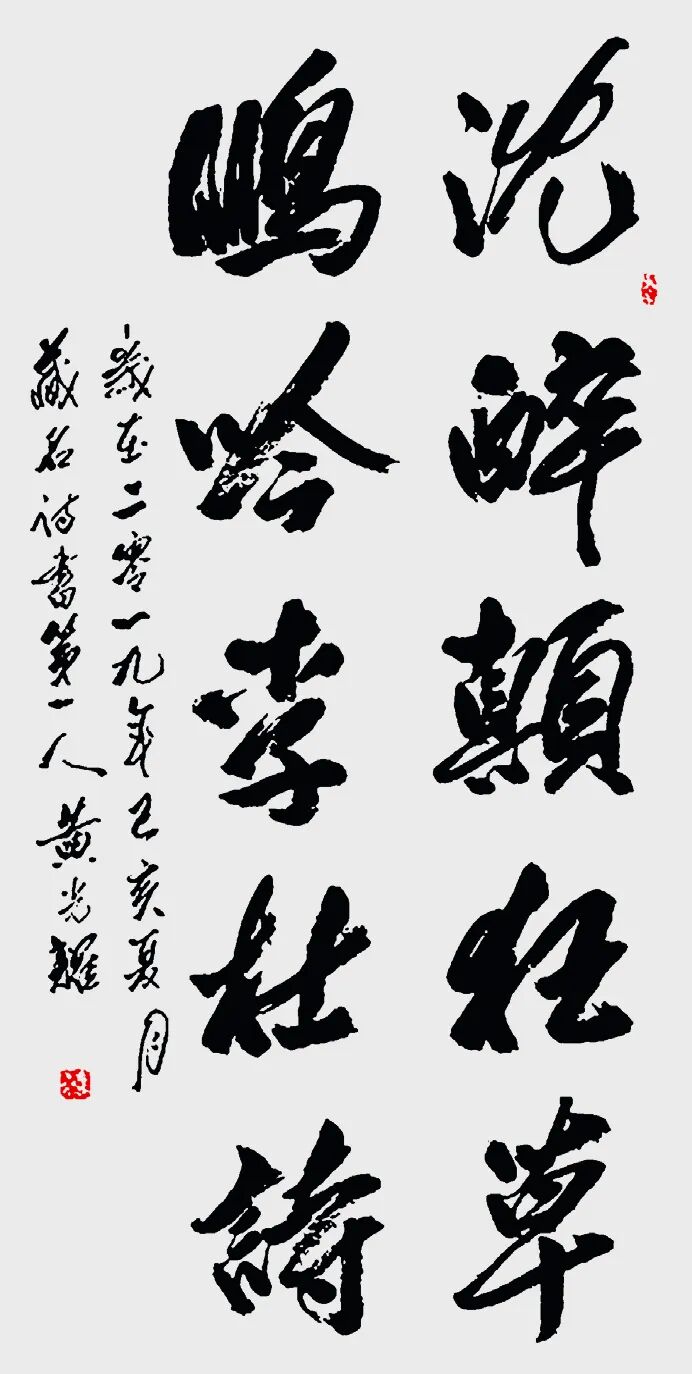 沈醉顛狂草
鵬吟李杜詩
歲在二零一九年己亥夏月
藏名诗書第一人黄光耀